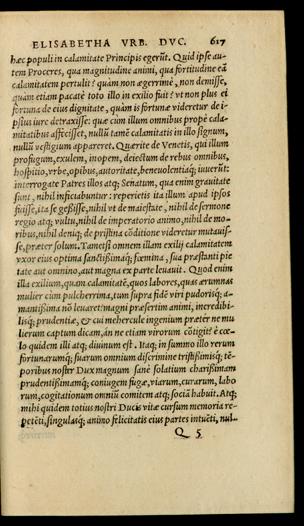 ELISABETHA VRB. DVC. 617
hæc populi in calamitate Principis egerūt. Quid ipse au-
tem Proceres, qua magnitudine animi, qua fortitudine eā
calamitatem pertulit? quàm non ægerrimè, non demisse,
quàm etiam pacatè toto illo in exilio fuit? vt non plus ei
fortuna de eius dignitate, quàm is fortunæ videretur de i-
psius iure detraxisse: quæ cùm illum omnibus propè cala-
mitatibus affecisset, nullū tamē calamitatis in illo signum,
nullū vestigium appareret. Quærite de Venetis, qui illum
profugum, exulem, inopem, deiectum de rebus omnibus,
hospitio, vrbe, opibus, autoritate, beneuolentiaq; iuuerūt:
interrogate Patres illos atq; Senatum, qua enim grauitate
sunt, nihil inficiabuntur: reperietis ita illum apud ipsos
fuisse, ita se gessisse, nihil vt de maiestate, nihil de sermone
regio atq; vultu, nihil de imperatorio animo, nihil de mo-
ribus, nihil deniq; de pristina cōditione videretur mutauis-
se, præter solum. Tametsi omnem illam exilij calamitatem
vxor eius optima sanctissimaq; fœmina, sua præstanti pie
tate aut omnino, aut magna ex parte leauit. Quod enim
illa exilium, quam calamitatē, quos labores, quas ærumnas
mulier cùm pulcherrima, tum supra fidē viri pudorisq; a-
mantissima nō leuaret? magni præsertim animi, incredibi-
lisq; prudentiæ, & cui mehercule ingenium præter ne mu
lierum captum dicam, án ne etiam virorum cōtigit? è cœ-
lo quidem illi atq; diuinum est. Itaq; in summo illo rerum
fortunarumq; suarum omnium discrimine tristissimisq; tē-
poribus noster Dux magnum sanè solatium charissimam
prudentissimamq; coniugem fugæ, viarum, curarum, labo
rum, cogitationum omniū comitem atq; sociā habuit. Atq;
mihi quidem totius nostri Ducis vitæ cursum memoria re-
petēti, singulasq; animo felicitatis eius partes intuēti, nul-
Q 5